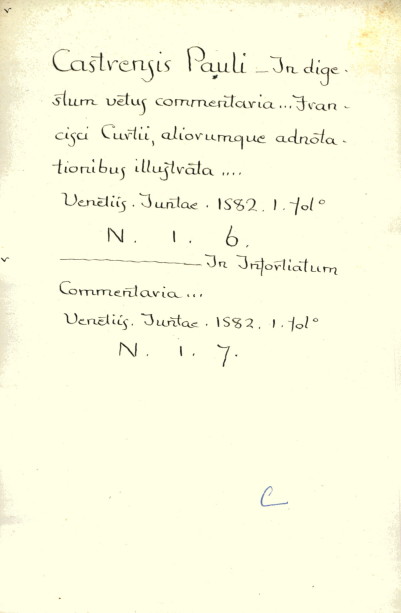 Castrensis Pauli - In dige-
stum vetus commentaria... Fran-
cisci Curtii, aliorumque adnota-
tionibus illustrata ....
Venetiis. Juntae. 1582. 1. fol°
N. 1. 6.
———— In Infortiatum
Commentaria...
Venetiis. Juntae. 1582. 1. fol°
N. 1. 7.
C